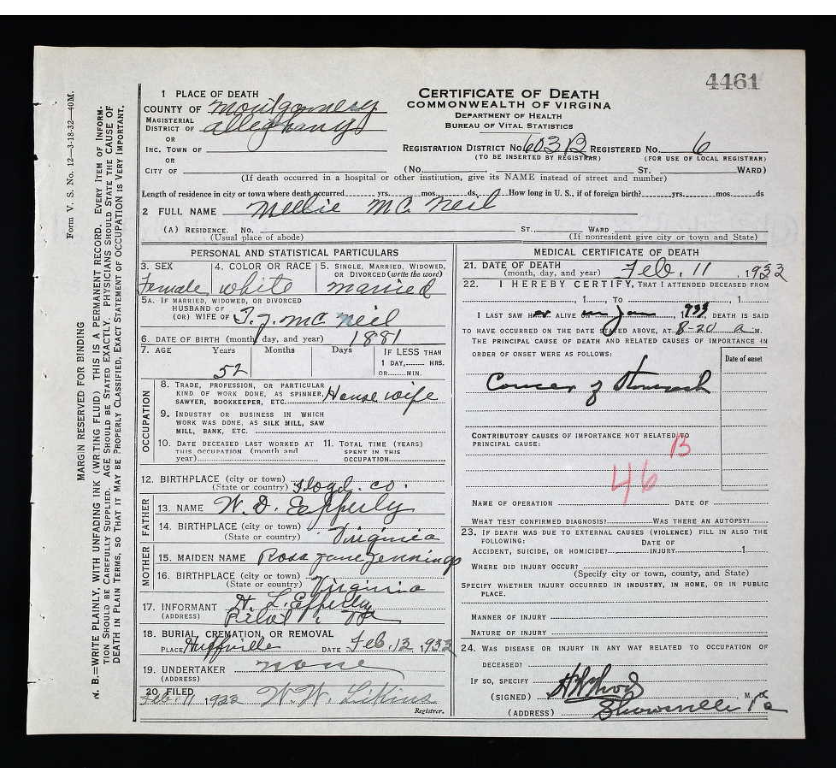 4461
CERTIFICATE OF DEATH
COMMONWEALTH OF VIRGINIA
DEPARTMENT OF HEALTH
BUREAU OF VITAL STATISTICS
1 PLACE OF DEATH
COUNTY OF Montgomery
MAGISTERIAL DISTRICT OF Alleghany
OR
INC. TOWN OF
OR
CITY OF
REGISTRATION DISTRICT No. 603B REGISTERED No. 6
(TO BE INSERTED BY REGISTRAR) (FOR USE OF LOCAL REGISTRAR)
(No. ST. WARD)
(If death occurred in a hospital or other institution, give its NAME instead of street and number)
Length of residence in city or town where death occurred yrs. mos. ds. How long in U. S., if of foreign birth? yrs. mos. ds
2 FULL NAME Nellie McNeil
(A) RESIDENCE. No. ST. WARD
(Usual place of abode) (If nonresident give city or town and State)
PERSONAL AND STATISTICAL PARTICULARS
3. SEX 4. COLOR OR RACE 5. SINGLE, MARRIED, WIDOWED, OR DIVORCED (write the word)
Female white married
5A. IF MARRIED, WIDOWED, OR DIVORCED
HUSBAND OF
(OR) WIFE OF T. J. McNeil
6. DATE OF BIRTH (month, day, and year) 1881
7. AGE Years Months Days IF LESS THAN
1 DAY, HRS.
OR MIN.
52
OCCUPATION
8. TRADE, PROFESSION, OR PARTICULAR
KIND OF WORK DONE, AS SPINNER,
SAWYER, BOOKKEEPER, ETC. House wife
9. INDUSTRY OR BUSINESS IN WHICH
WORK WAS DONE, AS SILK MILL, SAW
MILL, BANK, ETC.
10. DATE DECEASED LAST WORKED AT 11. TOTAL TIME (YEARS)
THIS OCCUPATION (month and SPENT IN THIS
year) OCCUPATION
12. BIRTHPLACE (city or town)
(State or country) Floyd. co.
FATHER
13. NAME W. D. Epperly
14. BIRTHPLACE (city or town)
(State or country) Virginia
MOTHER
15. MAIDEN NAME Rosa Jane Jennings
16. BIRTHPLACE (city or town)
(State or country) Virginia
17. INFORMANT H. L. Epperly
(ADDRESS) Pilot, Va
18. BURIAL, CREMATION, OR REMOVAL
PLACE Huffville DATE Feb. 12, 1933
19. UNDERTAKER none
(ADDRESS)
20. FILED Feb. 11 1933 W. W. Likins
Registrar.
MEDICAL CERTIFICATE OF DEATH
21. DATE OF DEATH
(month, day, and year) Feb. 11, 1933
22. I HEREBY CERTIFY, THAT I ATTENDED DECEASED FROM
, 1 TO , 1
I LAST SAW HER ALIVE on Jan, 1933 DEATH IS SAID
TO HAVE OCCURRED ON THE DATE STATED ABOVE, AT 8-20 a M.
THE PRINCIPAL CAUSE OF DEATH AND RELATED CAUSES OF IMPORTANCE IN
ORDER OF ONSET WERE AS FOLLOWS:
Date of onset
Cancer of Stomach
CONTRIBUTORY CAUSES OF IMPORTANCE NOT RELATED TO
PRINCIPAL CAUSE:
B
46
NAME OF OPERATION DATE OF
WHAT TEST CONFIRMED DIAGNOSIS? WAS THERE AN AUTOPSY?
23. IF DEATH WAS DUE TO EXTERNAL CAUSES (VIOLENCE) FILL IN ALSO THE
FOLLOWING:
DATE OF
ACCIDENT, SUICIDE, OR HOMICIDE? INJURY 1
WHERE DID INJURY OCCUR?
(Specify city or town, county, and State)
SPECIFY WHETHER INJURY OCCURRED IN INDUSTRY, IN HOME, OR IN PUBLIC
PLACE.
MANNER OF INJURY
NATURE OF INJURY
24. WAS DISEASE OR INJURY IN ANY WAY RELATED TO OCCUPATION OF
DECEASED?
IF SO, SPECIFY
(SIGNED) M. D.
(ADDRESS) Shawsville Va
Form V. S. No. 12—3-18-32—40M.
MARGIN RESERVED FOR BINDING
N. B.—WRITE PLAINLY, WITH UNFADING INK (WRITING FLUID) THIS IS A PERMANENT RECORD. EVERY ITEM OF INFORM-
TION SHOULD BE CAREFULLY SUPPLIED. AGE SHOULD BE STATED EXACTLY. PHYSICIANS SHOULD STATE THE CAUSE OF
DEATH IN PLAIN TERMS, SO THAT IT MAY BE PROPERLY CLASSIFIED. EXACT STATEMENT OF OCCUPATION IS VERY IMPORTANT.